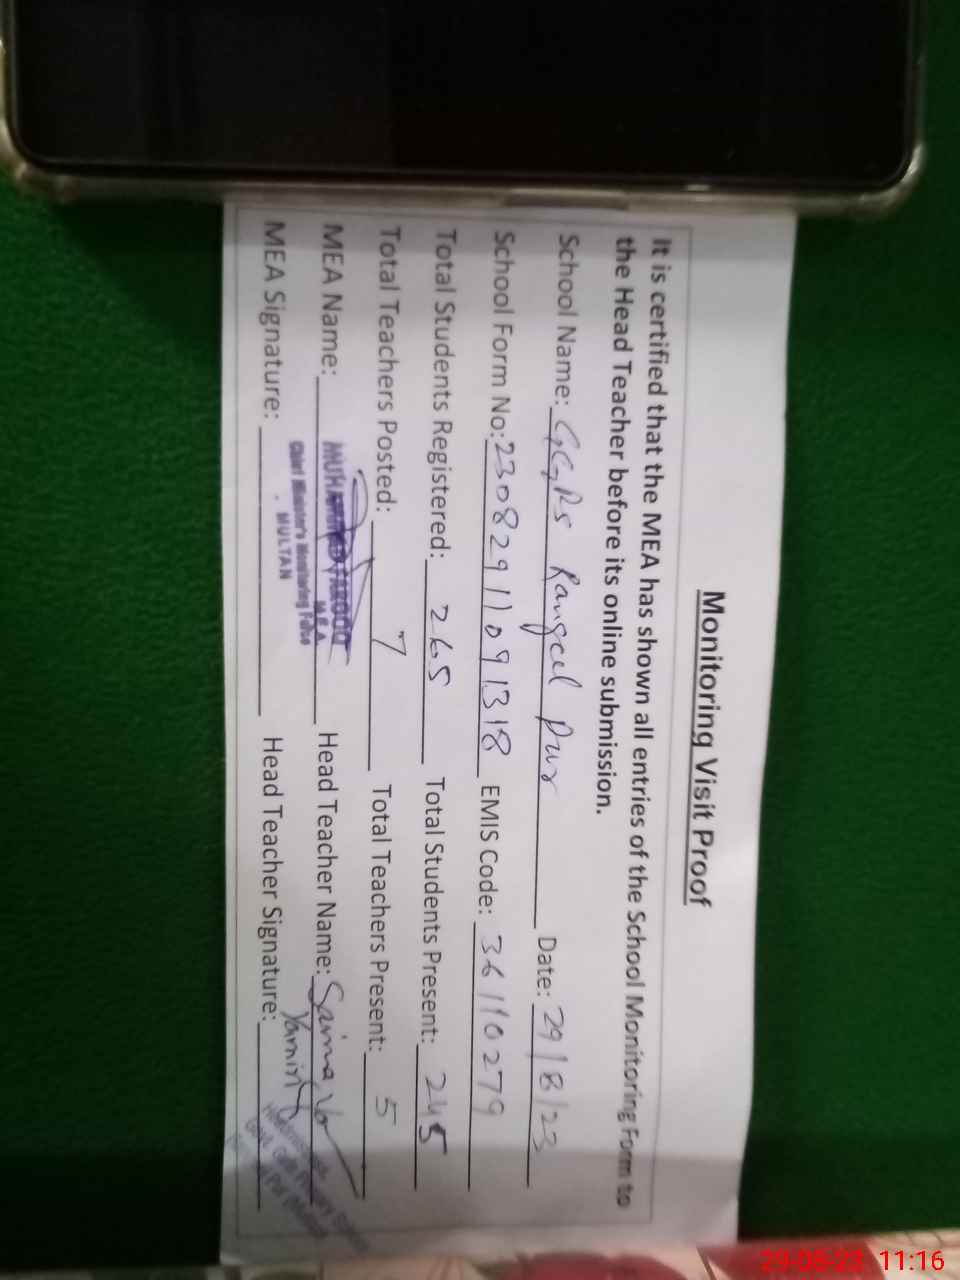 Monitoring Visit Proof
It is certified that the MEA has shown all entries of the School Monitoring Form to
the Head Teacher before its online submission.
School Name: GGPS Rangeel Pur Date: 29/8/23
School Form No: 23082911091318 EMIS Code: 36110279
Total Students Registered: 265 Total Students Present: 245
Total Teachers Posted: 7 Total Teachers Present: 5
MEA Name: MUHAMMAD FAROOQ Head Teacher Name: Saima
M.E.A.
MEA Signature: Chief Minister's Monitoring Force Head Teacher Signature: Yamin
MULTAN
29-08-23 11:16